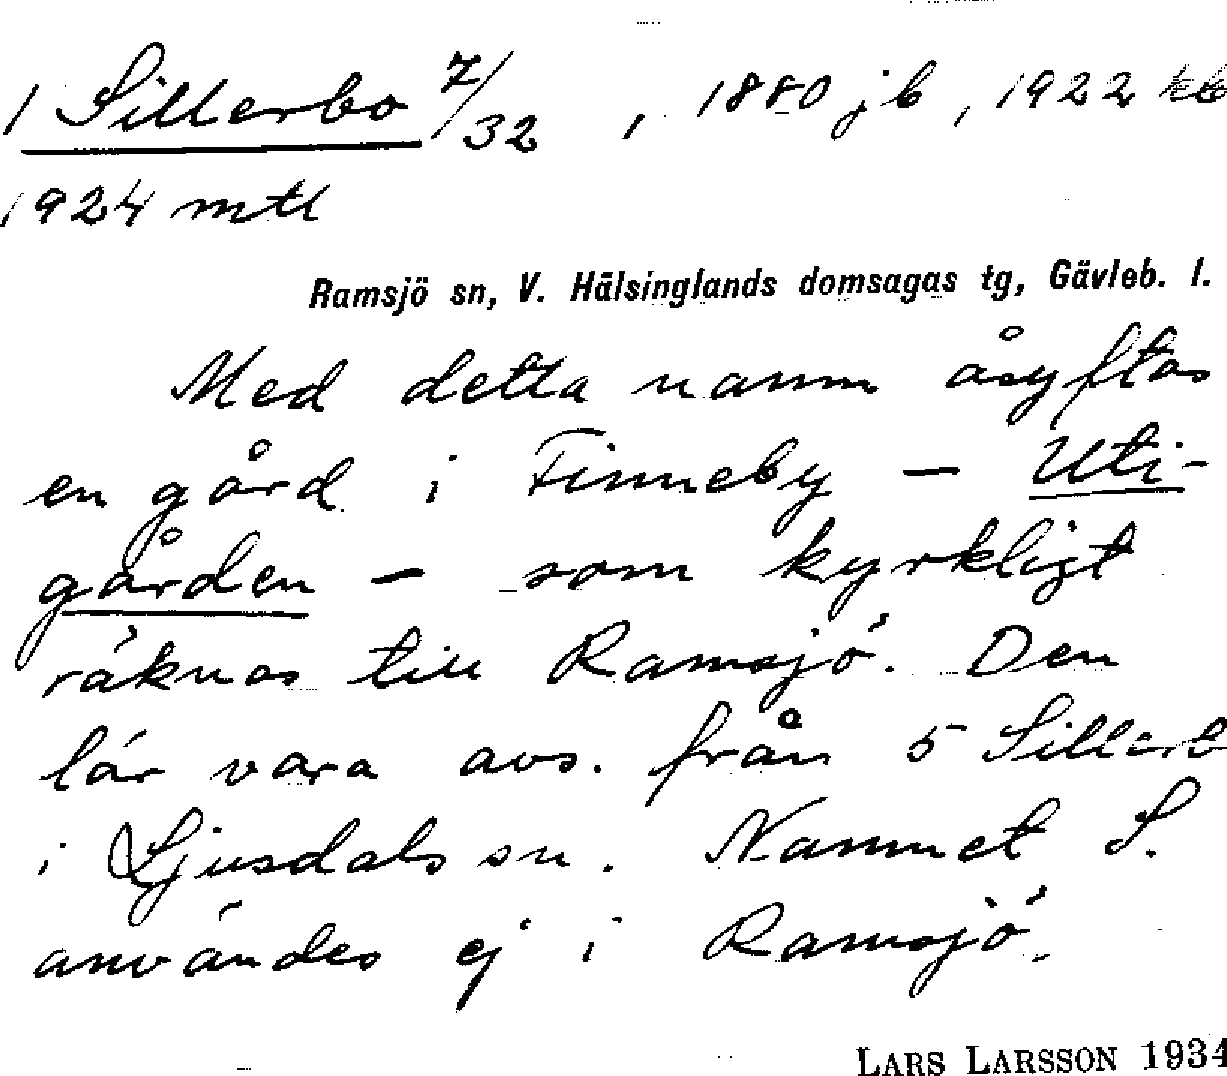 1 Sillerbo 7/32, 1880 jb, 1922 kb
1924 mtl
Ramsjö sn, V. Hälsinglands domsagas tg, Gävleb. l.
Med detta namn åsyftas
en gård i Finneby – Uti-
gården – som kyrkligt
räknas till Ramsjö. Den
lär vara avs. från 5 Sillerb
i Ljusdals sn. Namnet S.
användes ej i Ramsjö.
LARS LARSSON 1934